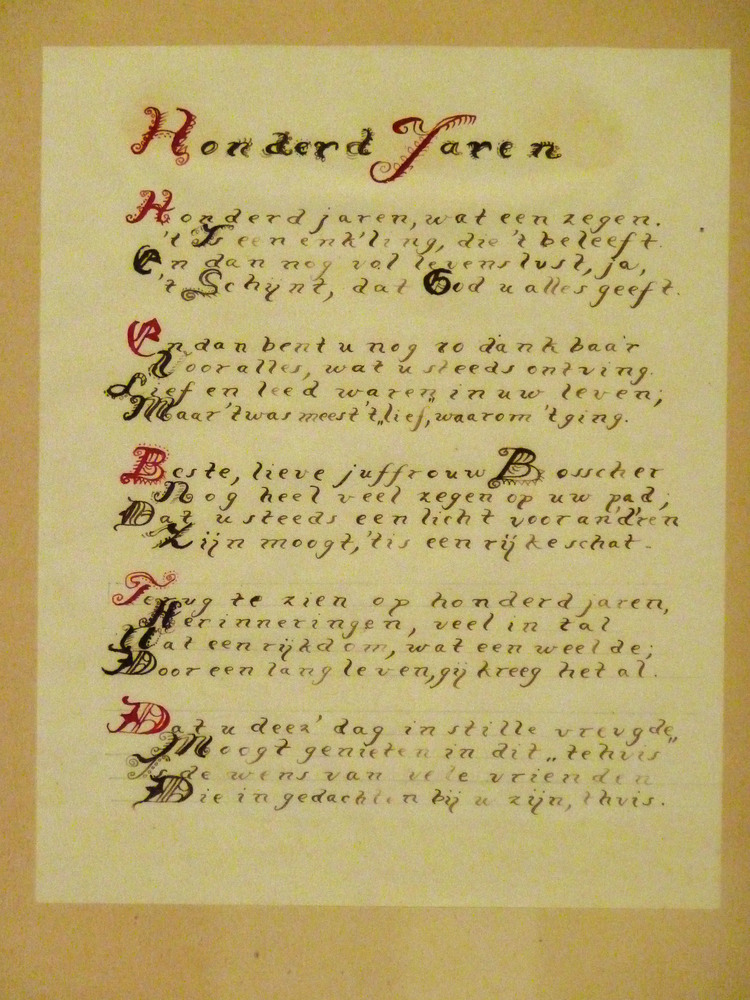 Honderd Jaren
Honderd jaren, wat een zegen.
't Is een enk'ling, die 't beleeft.
En dan nog vol levenslust, ja,
't Schijnt, dat God u alles geeft.
En dan bent u nog zo dankbaar
Voor alles, wat u steeds ontving.
Lief en leed waren, in uw leven;
Maar 't was meest 't „lief, waarom 't ging.
Beste, lieve juffrouw Bosscher
Nog heel veel zegen op uw pad;
Dat u steeds een licht voor and'ren
Zijn moogt, 't is een rijke schat.
Terug te zien op honderd jaren,
Herinneringen, veel in tal
Wat een rijkdom, wat een weelde;
Door een lang leven, gij kreeg het al.
Dat u deez' dag in stille vreugde,
Moogt genieten in dit „tehuis"
Is de wens van vele vrienden
Die in gedachten bij u zijn, thuis.